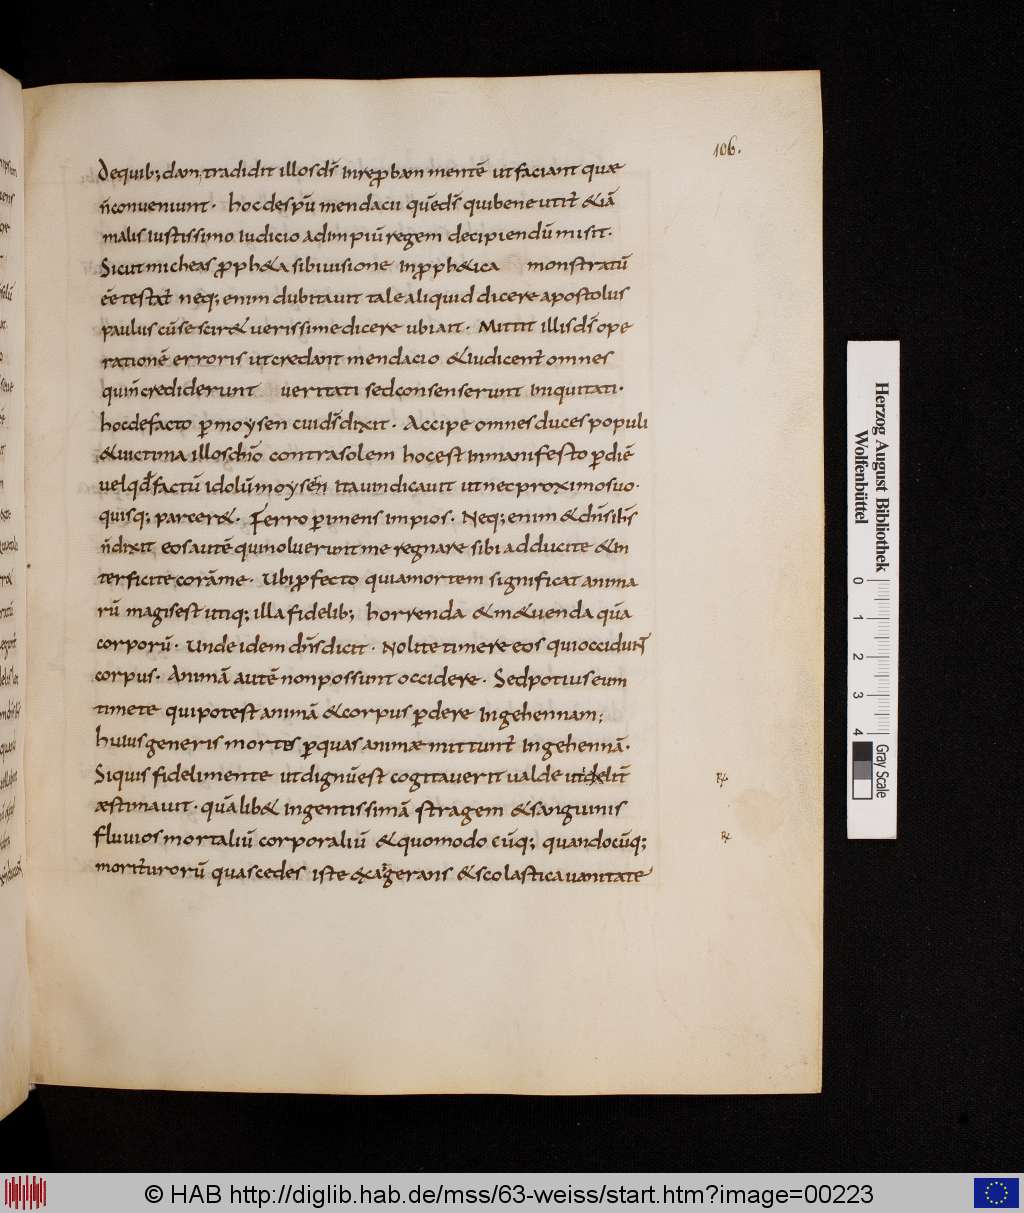 106.
Dequib; dam, tradidit illos ds̄ inreprobam mentē ut faciant quæ
n̄ conveniunt. hoc despū mendacii quēds̄ qui bene utit̄ & iā
malis iustissimo iudicio ad impiū regem decipiendū misit.
Sicut micheas ꝓph&a sibi uisione inꝓph&ica monstratū
ēē testat̄ neq; enim dubitauit tale aliquid dicere apostolus
paulus cū se scir& uerissime dicere ubi ait. Mittit illis ds̄ ope
rationē erroris ut credant mendacio & iudicent̄ omnes
qui n̄ crediderunt ueritati sed consenserunt iniquitati.
hoc de facto ꝑ moysen cui ds̄ dixit. Accipe omnes duces populi
& uictima illos dn̄o contra solem hoc est in manifesto ꝑ diē
uel qđ factū idolū moysen ita uindicauit ut nec proximo suo.
quisq; parcer&. Ferro ꝑimens impios. Neq; enim & dn̄s ihs̄
n̄ dixit eos autē qui noluerunt me regnare sibi adducite & in
terficite corā me. Ubi ꝓfecto quia mortem significat anima
rū magis est utiq; illa fidelib; horrenda & m&uenda quā
corporū. Unde idem dn̄s dicit. Nolite timere eos qui occidunt̄
corpus. Animā autē non possunt occidere. Sed potius eum
timete qui potest animā & corpus ꝑdere in gehennam;
huius generis mortes ꝑ quas animæ mittunt̄ in gehennā.
Si quis fideli mente ut dignū est cogitauerit ualde
æstimauit. quālib& ingentissimā stragem & sanguinis
fluuios mortaliū corporaliū & quomodocūq; quandocūq;
morit̄urorū quas cedes iste exaggerans & scolastica uanitate
Herzog August Bibliothek
Wolfenbüttel
0 1 2 3 4
Gray Scale
© HAB http://diglib.hab.de/mss/63-weiss/start.htm?image=00223